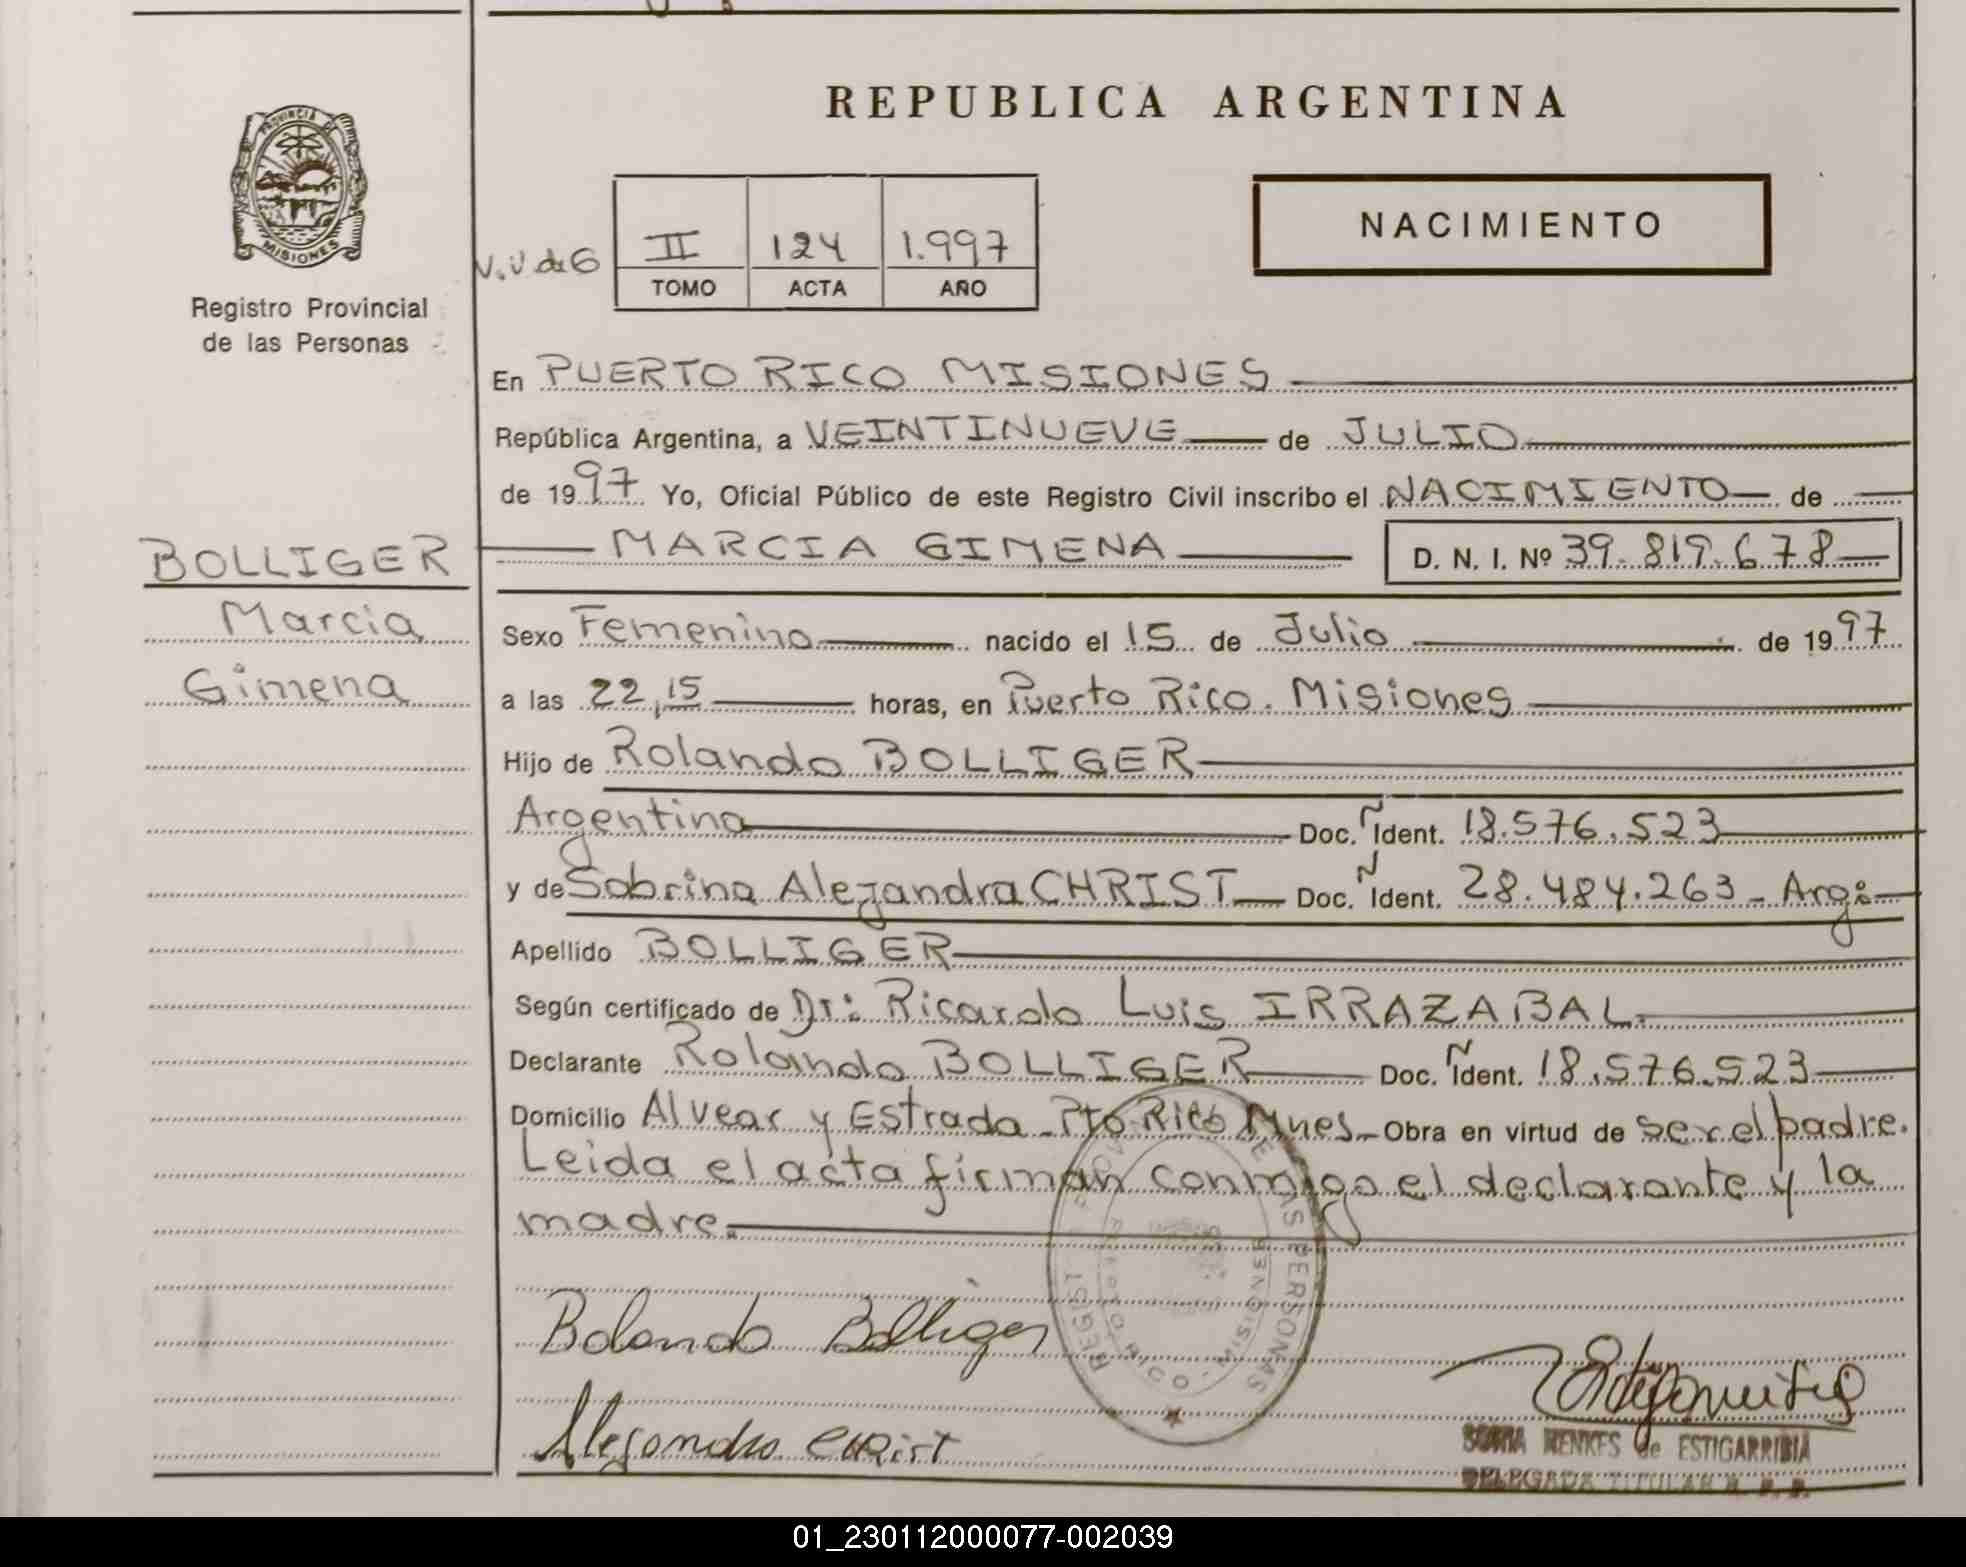 REPUBLICA ARGENTINA
PROVINCIA DE
MISIONES
Registro Provincial
de las Personas
NACIMIENTO
V.V. de 6
II 124 1.997
TOMO ACTA AÑO
En PUERTO RICO MISIONES
República Argentina, a VEINTINUEVE de JULIO
de 1997 Yo, Oficial Público de este Registro Civil inscribo el NACIMIENTO de
BOLLIGER
Marcia
Gimena
MARCIA GIMENA D. N. I. Nº 39.819.678
Sexo Femenino nacido el 15 de Julio de 1997
a las 22,15 horas, en Puerto Rico. Misiones
Hijo de Rolando BOLLIGER
Argentino Doc. Ñ Ident. 18.576.523
y de Sabrina Alejandra CHRIST Doc. Ñ Ident. 28.484.263 - Arg:
Apellido BOLLIGER
Según certificado de Dr: Ricardo Luis IRRAZABAL.
Declarante Rolando BOLLIGER Doc. Ñ Ident. 18.576.523
Domicilio Alvear y Estrada - Pto Rico Mnes - Obra en virtud de ser el padre.
Leida el acta firman conmigo el declarante y la
madre.
LAS PERSONAS
PUERTO RICO - MISIONES
Rolando Bolliger
Alejandra CHRIST
SONIA MENKES de ESTIGARRIBIA
DELEGADA TITULAR R. P. P.
01_230112000077-002039